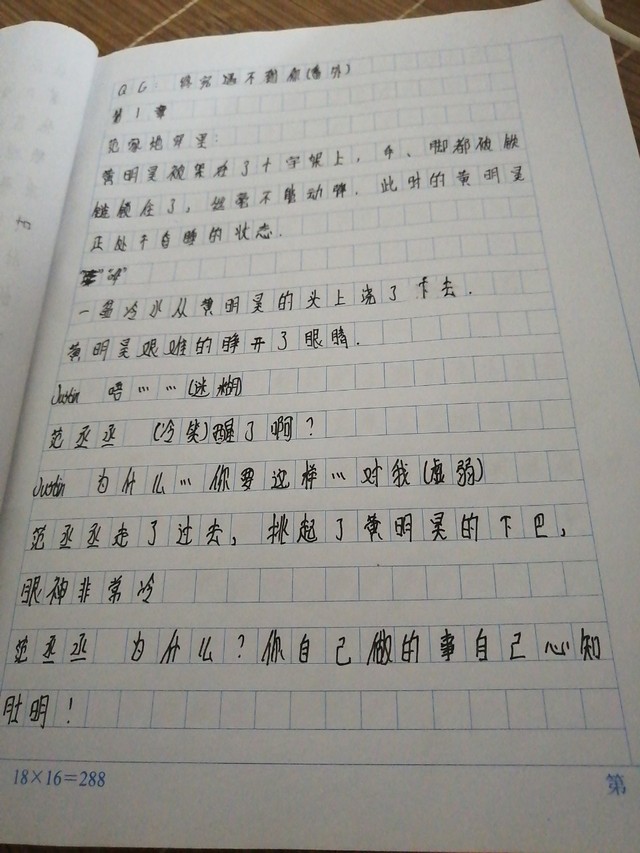 QG：终究遇不到你(番外)
第1章
范家地牢里：
黄明昊被架在了十字架上，手、脚都被铁
链锁住了，丝毫不能动弹．此时的黄明昊
正处于昏睡的状态．
一盆冷水从黄明昊的头上浇了下去．
黄明昊艰难的睁开了眼睛．
Justin 唔……(迷糊)
范丞丞 (冷笑)醒了啊？
Justin 为什么…你要这样…对我(虚弱)
范丞丞走了过去，挑起了黄明昊的下巴，
眼神非常冷
范丞丞 为什么？你自己做的事自己心知
肚明！
18×16=288
第